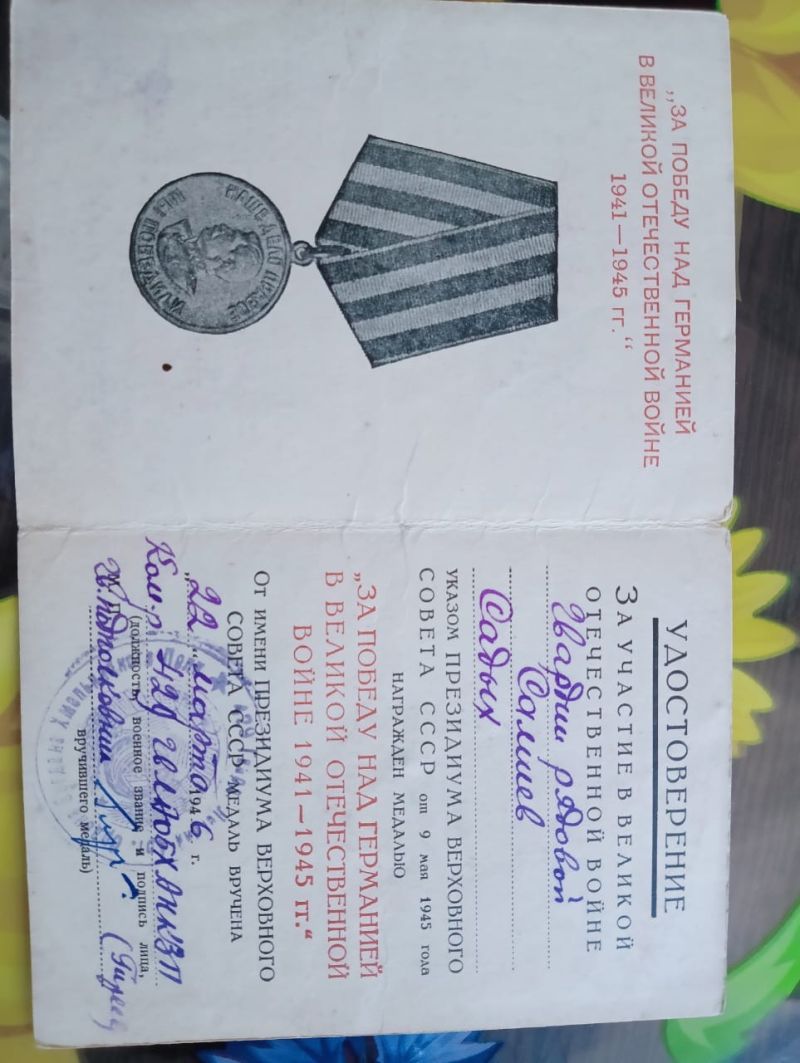 „ЗА ПОБЕДУ НАД ГЕРМАНИЕЙ
В ВЕЛИКОЙ ОТЕЧЕСТВЕННОЙ ВОЙНЕ
1941—1945 гг.“
НАШЕ ДЕЛО ПРАВОЕ
МЫ ПОБЕДИЛИ
УДОСТОВЕРЕНИЕ
ЗА УЧАСТИЕ В ВЕЛИКОЙ
ОТЕЧЕСТВЕННОЙ ВОЙНЕ
Гвардии рядовой
Салиев
Садых
УКАЗОМ ПРЕЗИДИУМА ВЕРХОВНОГО
СОВЕТА СССР от 9 мая 1945 года
НАГРАЖДЕН МЕДАЛЬЮ
„ЗА ПОБЕДУ НАД ГЕРМАНИЕЙ
В ВЕЛИКОЙ ОТЕЧЕСТВЕННОЙ
ВОЙНЕ 1941—1945 гг.“
От ИМЕНИ ПРЕЗИДИУМА ВЕРХОВНОГО
СОВЕТА СССР МЕДАЛЬ ВРУЧЕНА
„22“ марта 1946 г.
М. П. (должность, военное звание и подпись лица,
вручившего медаль)